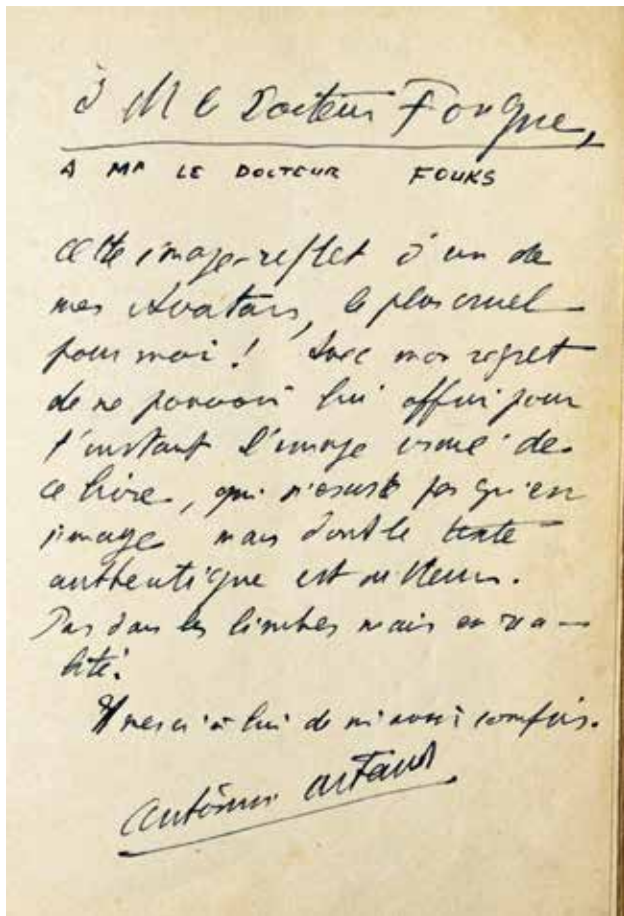 à M le Docteur Fouque,
A MR LE DOCTEUR FOUKS
cette image-reflet d'un de
mes Avatars, le plus cruel
pour moi ! Avec mon regret
de ne pouvoir lui offrir pour
l'instant l'image de
ce livre, qui n'existe pas qu'en
image mais dont le texte
authentique est ailleurs.
Pas dans les limbes mais en réa-
lité.
Merci à lui de m'avoir compris.
Antonin Artaud